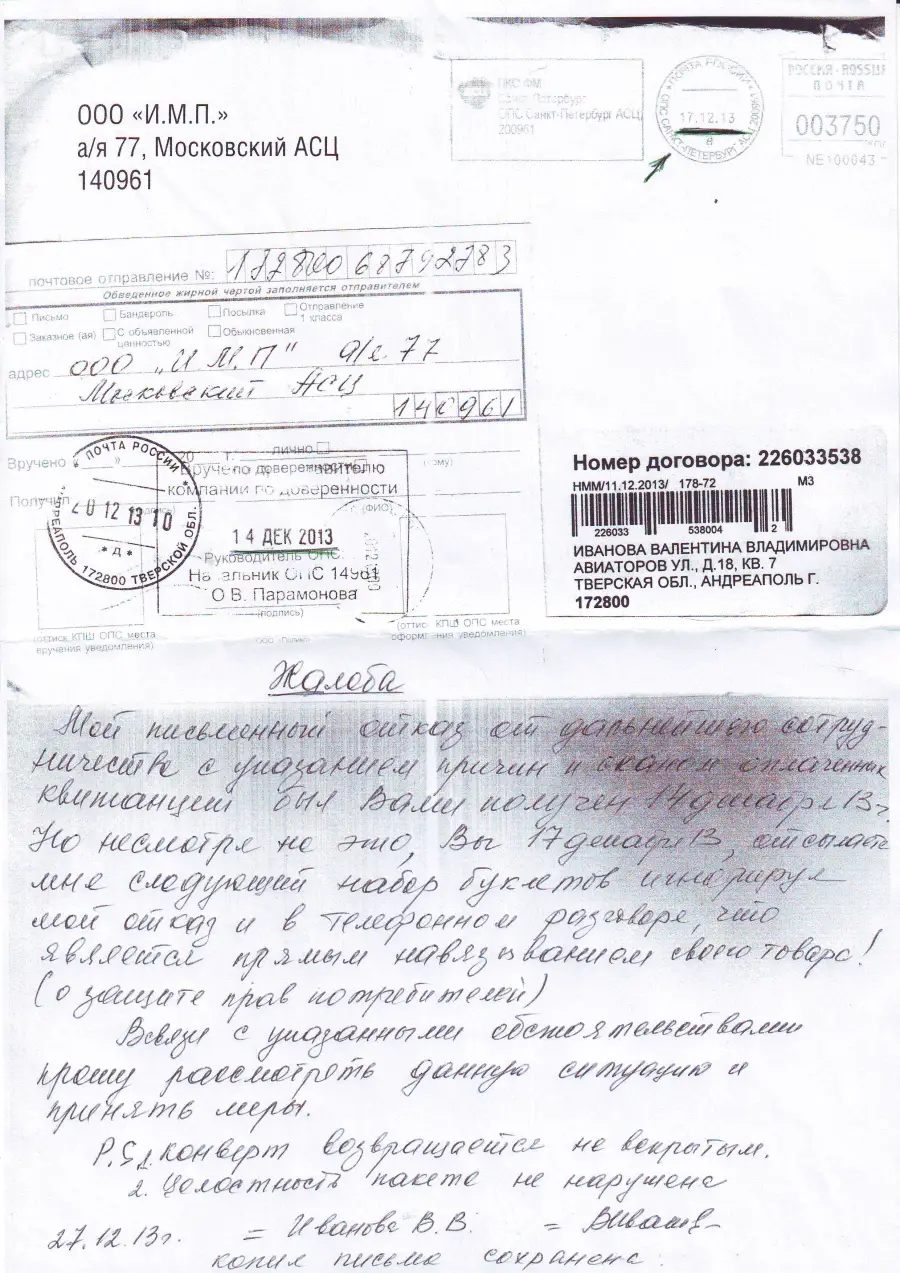 ООО «И.М.П.»
а/я 77, Московский АСЦ
140961
ПИС ФМ
Санкт-Петербург
ОПС Санкт-Петербург АСЦ
200961
ПОЧТА РОССИИ
17.12.13
ОПС САНКТ-ПЕТЕРБУРГ АСЦ 200961
РОССИЯ-ROSSIJA
ПОЧТА
003750
NE100043
почтовое отправление №: 17280068792783
Обведенное жирной чертой заполняется отправителем
Письмо Бандероль Посылка Отправление 1 класса
Заказное (ая) С объявленной ценностью Обыкновенная
адрес ООО "И М.П" а/я 77
Московский АСЦ
140961
Вручено 20 г. лично
Вручено по доверенности
компании по доверенности
Получил
(ФИО)
14 ДЕК 2013
Руководитель ОПС
Начальник ОПС 14961
О В. Парамонова
(подпись)
ПОЧТА РОССИИ
20 12 13 10
Д
АНДРЕАПОЛЬ 172800 ТВЕРСКОЙ ОБЛ.
(оттиск КПШ ОПС места
вручения уведомления)
(оттиск КПШ ОПС места
Номер договора: 226033538
НММ/11.12.2013/ 178-72 М3
226033 538004 2
ИВАНОВА ВАЛЕНТИНА ВЛАДИМИРОВНА
АВИАТОРОВ УЛ., Д.18, КВ. 7
ТВЕРСКАЯ ОБЛ., АНДРЕАПОЛЬ Г.
172800
Жалоба
Мой письменный отказ от дальнейшего сотруд-
ничества с указанием причин и сканом оплаченных
квитанций был Вами получен 14 декабря 13 г.
Но несмотря на это, Вы 17 декабря 13, отсылаете
мне следующий набор буклетов игнорируя
мой отказ и в телефонном разговоре, что
является прямым навязыванием своего товара!
(о защите прав потребителей)
В связи с указанными обстоятельствами
прошу рассмотреть данную ситуацию и
принять меры.
P.S. 1. конверт возвращается не вскрытым.
2. Целостность пакета не нарушена
27.12.13г. = Иванова В.В. =
копия письма сохранена.